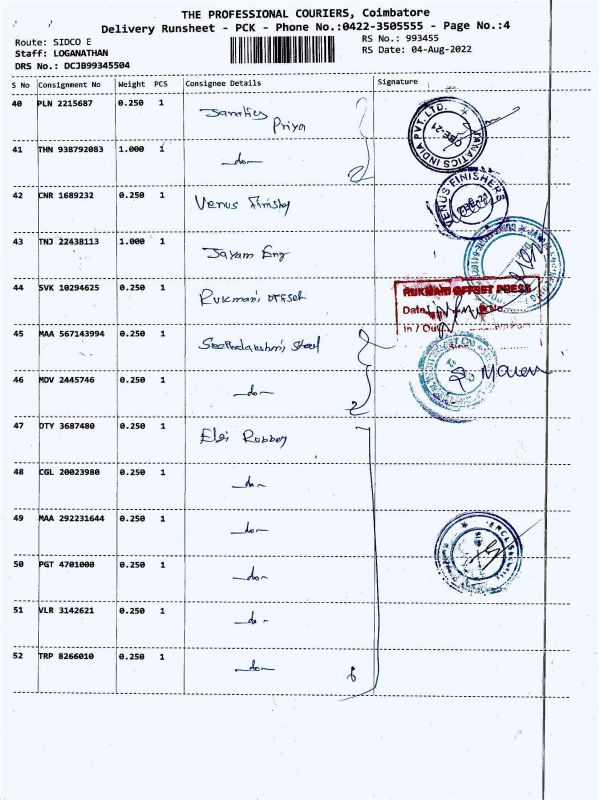 THE PROFESSIONAL COURIERS, Coimbatore
Delivery Runsheet - PCK - Phone No.:0422-3505555 - Page No.:4
Route: SIDCO E
RS No.: 993455
Staff: LOGANATHAN
RS Date: 04-Aug-2022
DRS No.: DCJB99345504
S No Consignment No Weight PCS Consignee Details Signature
40 PLN 2215687 0.250 1
Priya
41 THN 938792083 1.000 1 -do-
42 CNR 1689232 0.250 1 Venus
VENUS FINISHERS
43 TNJ 22438113 1.000 1 Jayam Eng
44 SVK 10294625 0.250 1 Rukmani offset
RUKMANI OFFSET PRESS
Date
In / Out
45 MAA 567143994 0.250 1 Steel
46 MDV 2445746 0.250 1 -do-
2
47 OTY 3687480 0.250 1 Rubber
48 CGL 20023980 0.250 1 -do-
49 MAA 292231644 0.250 1 -do-
50 PGT 4701000 0.250 1 -do-
51 VLR 3142621 0.250 1 -do-
52 TRP 8266010 0.250 1 -do- 6